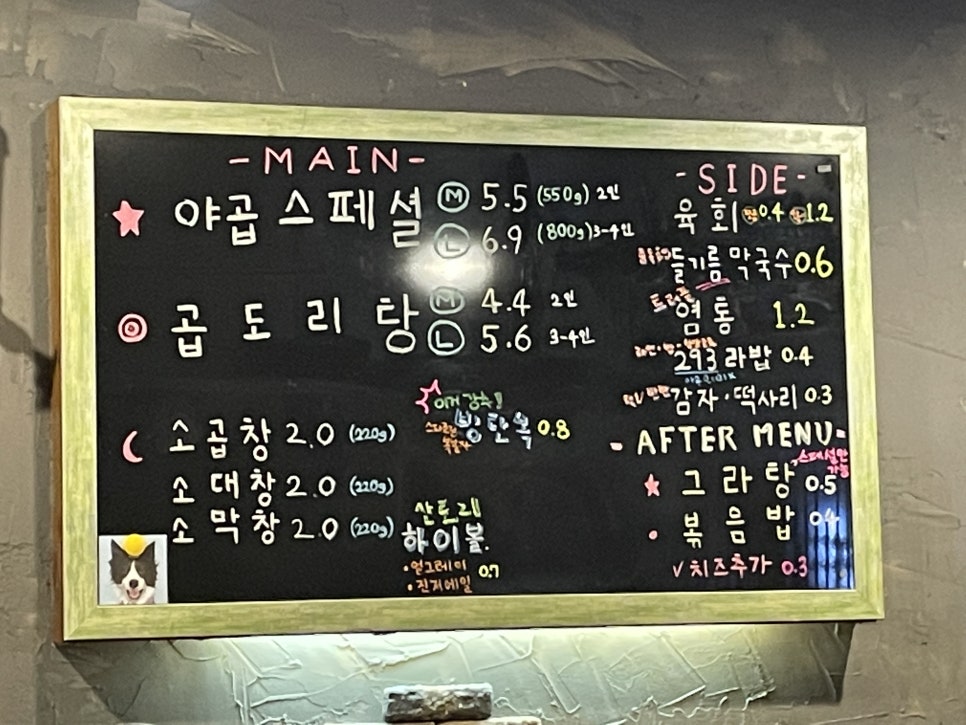 - MAIN -
야곱스페셜 M 5.5 (550g) 2인
L 6.9 (800g) 3-4인
곱도리탕 M 4.4 2인
L 5.6 3-4인
소곱창 2.0 (220g)
소대창 2.0 (220g)
소막창 2.0 (220g)
빙탄복 0.8
산토리
하이볼
• 얼그레이 0.7
• 진저에일
- SIDE -
육회 0.4 1.2
들기름막국수 0.6
트러플
염통 1.2
293라밥 0.4
감자·떡사리 0.3
- AFTER MENU -
스페셜만
가능
그라탕 0.5
볶음밥 0.4
v 치즈추가 0.3